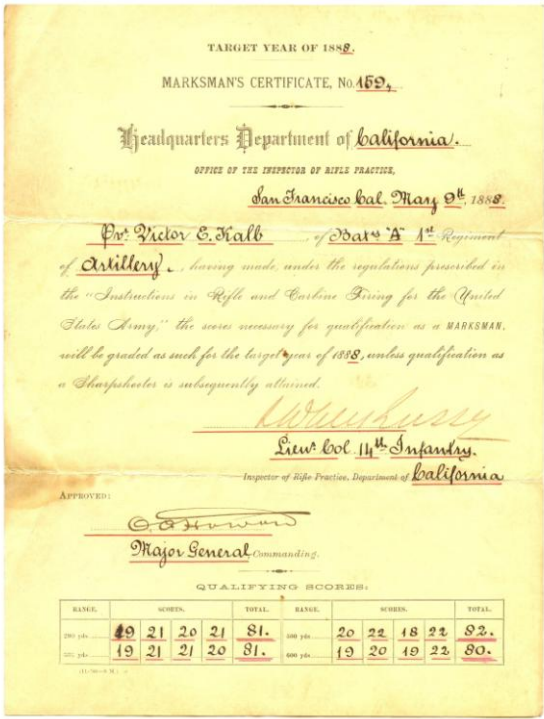 TARGET YEAR OF 1888.
MARKSMAN'S CERTIFICATE, No. 159,
Headquarters Department of California.
OFFICE OF THE INSPECTOR OF RIFLE PRACTICE,
San Francisco Cal. May 9th, 1888.
Pvt Victor E. Kalb, of Baty "A" 1st Regiment
of Artillery, having made, under the regulations prescribed in
the "Instructions in Rifle and Carbine Firing for the United
States Army," the scores necessary for qualification as a MARKSMAN,
will be graded as such for the target year of 1888, unless qualification as
a Sharpshooter is subsequently attained.
Lieut Col 14th Infantry.
Inspector of Rifle Practice, Department of California
APPROVED:
O. O. Howard
Major General, Commanding.
QUALIFYING SCORES:
RANGE. SCORES. TOTAL. RANGE. SCORES. TOTAL.
200 yds 19 21 20 21 81. 500 yds 20 22 18 22 82.
300 yds 19 21 21 20 81. 600 yds 19 20 19 22 80.